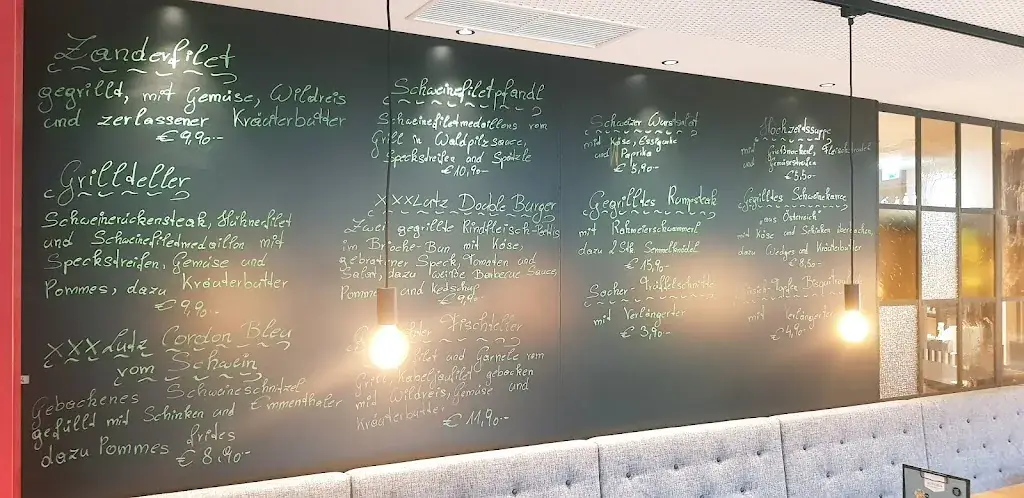 Zanderfilet
gegrillt, mit Gemüse, Wildreis
und zerlassener Kräuterbutter
€ 9,90.-
Grillteller
Schweinerückensteak, Hühnerfilet
und Schweinefiletmedaillon mit
Speckstreifen, Gemüse und
Pommes, dazu Kräuterbutter
€ 9,90.-
XXXLutz Cordon Bleu
vom Schwein
Gebackenes Schweineschnitzel
gefüllt mit Schinken und Emmenthaler
dazu Pommes frites
€ 8,90.-
Schweinefiletpfandl
Schweinefiletmedaillons vom
Grill in Waldpilzsauce,
Speckstreifen und Spätzle
€ 10,90.-
XXXLutz Double Burger
Zwei gegrillte Rindfleisch-Pattys
im Brioche-Bun mit Käse,
gebratner Speck, Tomaten und
Salat, dazu weiße Barbecue Sauce,
Pommes und Ketschup
€ 9,90.-
Fischteller
und Garnele vom
Grill, Kabeljaufilet gebacken
mit Wildreis, Gemüse und
Kräuterbutter
€ 11,90.-
Schweizer Wurstsalat
mit Käse, Essiggurke
und Paprika
€ 5,90.-
Gegrilltes Rumpsteak
mit Rahmeierschwammerl
dazu 2 Stk. Semmelknödel
€ 15,90.-
Sacher-Trüffelschnitte
mit Verlängerter
€ 3,90.-
Hochzeitssuppe
mit Grießnockerl, Fleischstrudel
und Gemüsestreifen
€ 5,50.-
Gegrilltes Schweinekarree
aus Österreich
mit Käse und Schinken überbacken,
dazu Wedges und Kräuterbutter
€ 8,50.-
mit Verlängerter
€ 4,90.-